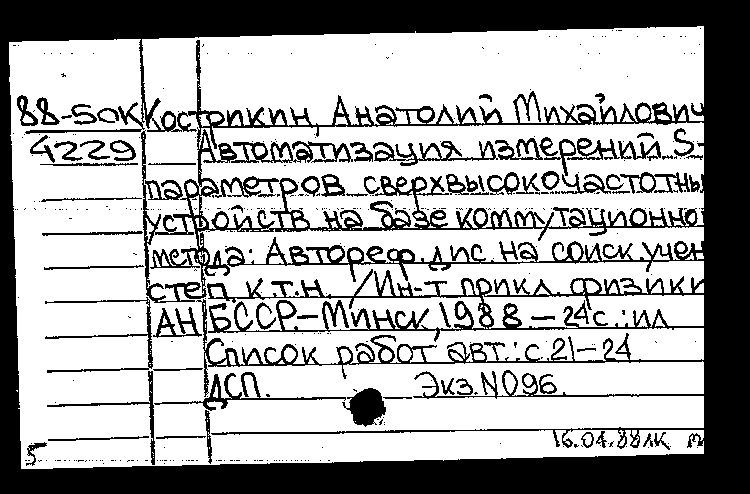 88-50К Кострикин, Анатолий Михайлович
4229 Автоматизация измерений S-
параметров сверхвысокочастотны
устройств на базе коммутационно
метода: Автореф. дис. на соиск. учен
степ. к.т.н. /Ин-т прикл. физики
АН БССР.-Минск, 1988.-24с.:ил.
Список работ авт.: с.21-24
ДСП. Экз.N096.
16.04.88
5